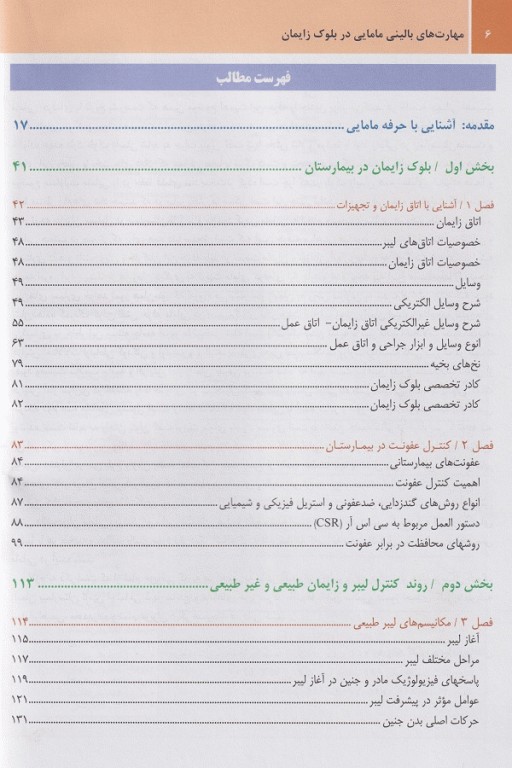 ۶ مهارت‌های بالینی مامایی در بلوک زایمان
فهرست مطالب
مقدمه: آشنایی با حرفه مامایی ۱۷
بخش اول / بلوک زایمان در بیمارستان ۴۱
فصل ۱ / آشنایی با اتاق زایمان و تجهیزات ۴۲
اتاق زایمان ۴۳
خصوصیات اتاق‌های لیبر ۴۸
خصوصیات اتاق زایمان ۴۸
وسایل ۴۹
شرح وسایل الکتریکی ۴۹
شرح وسایل غیرالکتریکی اتاق زایمان- اتاق عمل ۵۵
انوع وسایل و ابزار جراحی و اتاق عمل ۶۳
نخ‌های بخیه ۷۹
کادر تخصصی بلوک زایمان ۸۱
کادر تخصصی بلوک زایمان ۸۲
فصل ۲ / کنترل عفونت در بیمارستان ۸۳
عفونت‌های بیمارستانی ۸۴
اهمیت کنترل عفونت ۸۴
انواع روش‌های گندزدایی، ضدعفونی و استریل فیزیکی و شیمیایی ۸۷
دستور العمل مربوط به سی اس آر (CSR) ۸۸
روشهای محافظت در برابر عفونت ۹۹
بخش دوم / روند کنترل لیبر و زایمان طبیعی و غیر طبیعی ۱۱۳
فصل ۳ / مکانیسم‌های لیبر طبیعی ۱۱۴
آغاز لیبر ۱۱۵
مراحل مختلف لیبر ۱۱۷
پاسخهای فیزیولوژیک مادر و جنین در آغاز لیبر ۱۱۹
عوامل مؤثر در پیشرفت لیبر ۱۲۱
حرکات اصلی بدن جنین ۱۳۱